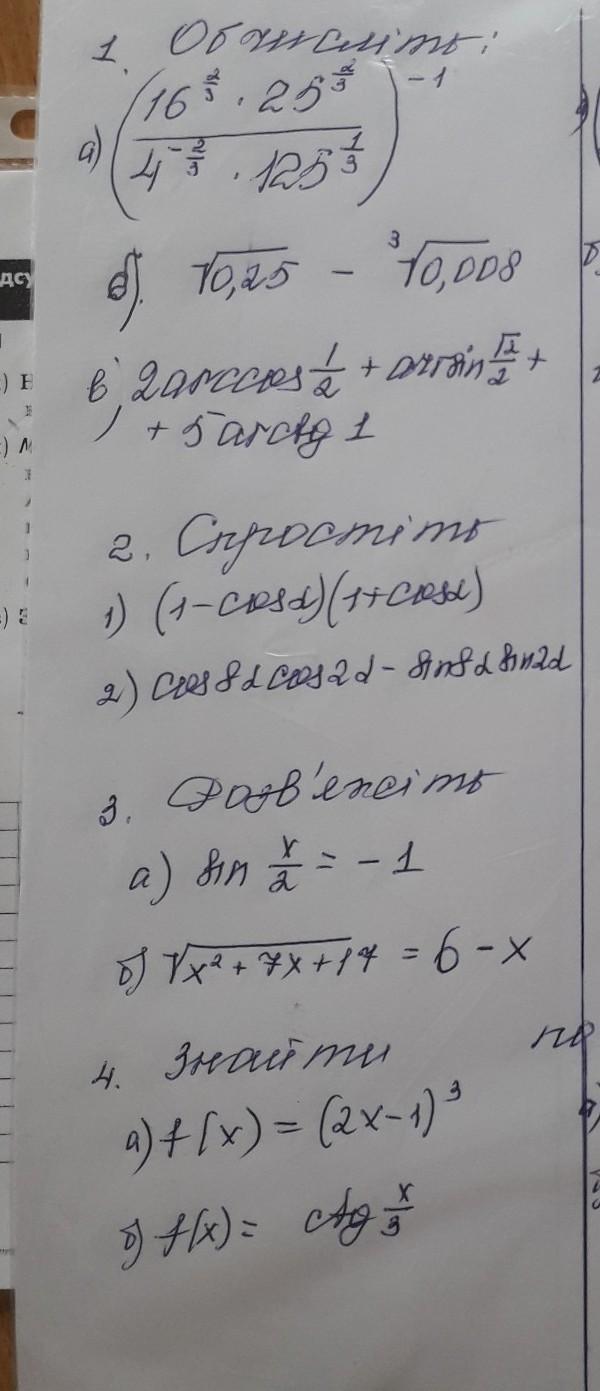 1. Обчисліть:
а) (16^(2/3) · 25^(2/3) / 4^(-2/3) · 125^(1/3))^(-1)
б) √0,25 - ∛0,008
в) 2arccos 1/2 + arcsin √2/2 +
+ 5 arctg 1
2. Спростіть
1) (1-cosα)(1+cosα)
2) cos8α cos2α - sin8α sin2α
3. Розв'яжіть
а) sin x/2 = -1
б) √x²+7x+17 = 6-x
4. Знайти по
а) f(x) = (2x-1)³
б) f(x) = ctg x/3